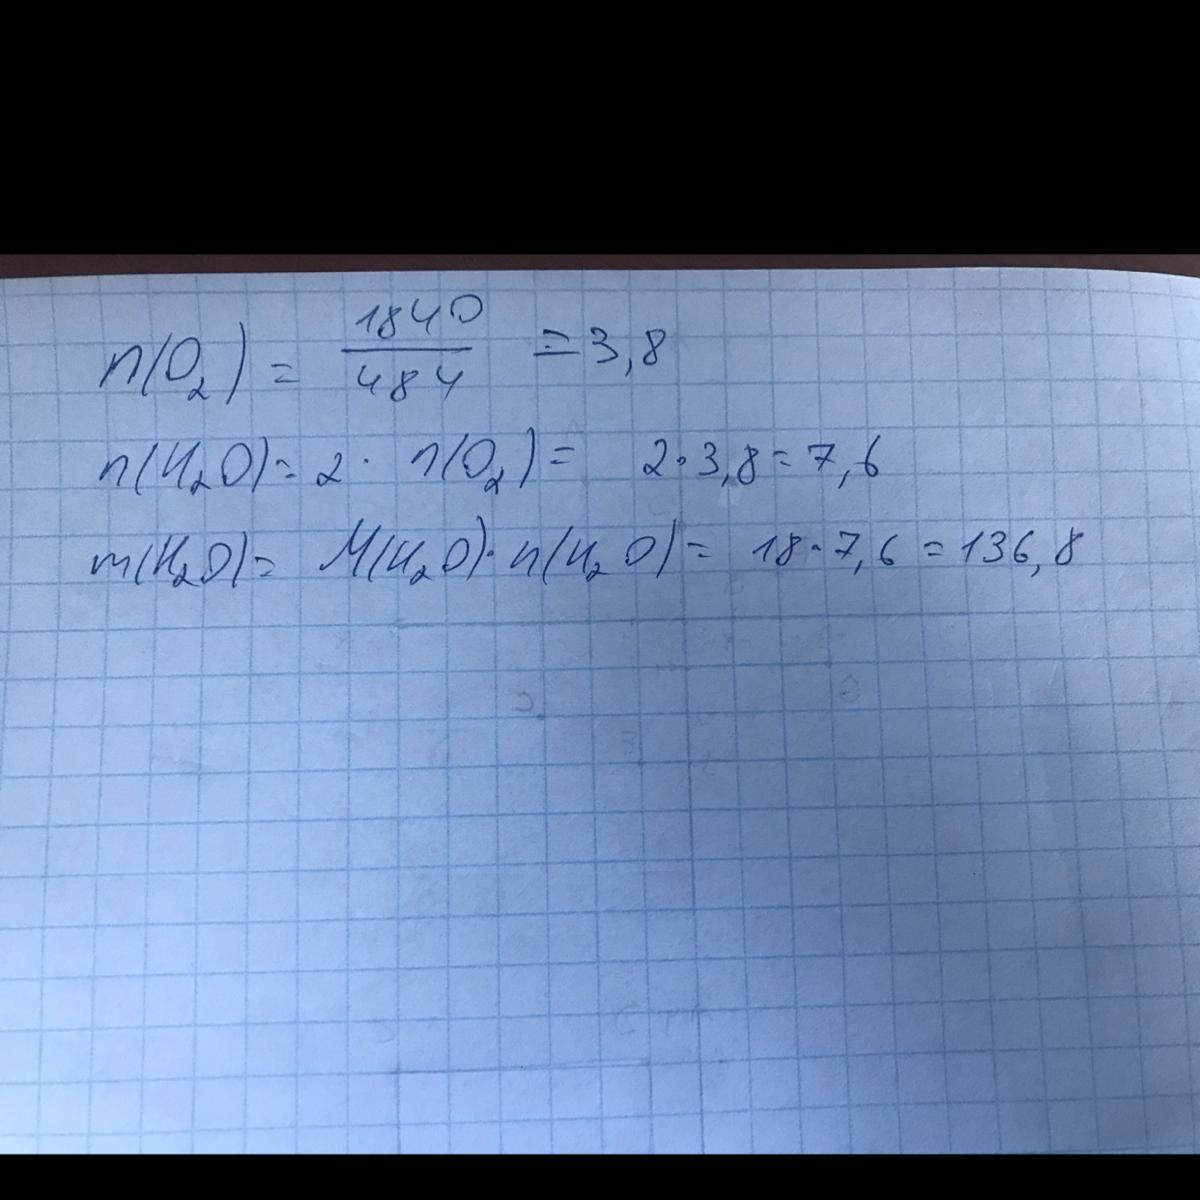 n(O₂) = 1840/484 = 3,8
n(H₂O) = 2 · n(O₂) = 2·3,8 = 7,6
m(H₂O) = M(H₂O)·n(H₂O) = 18·7,6 = 136,8